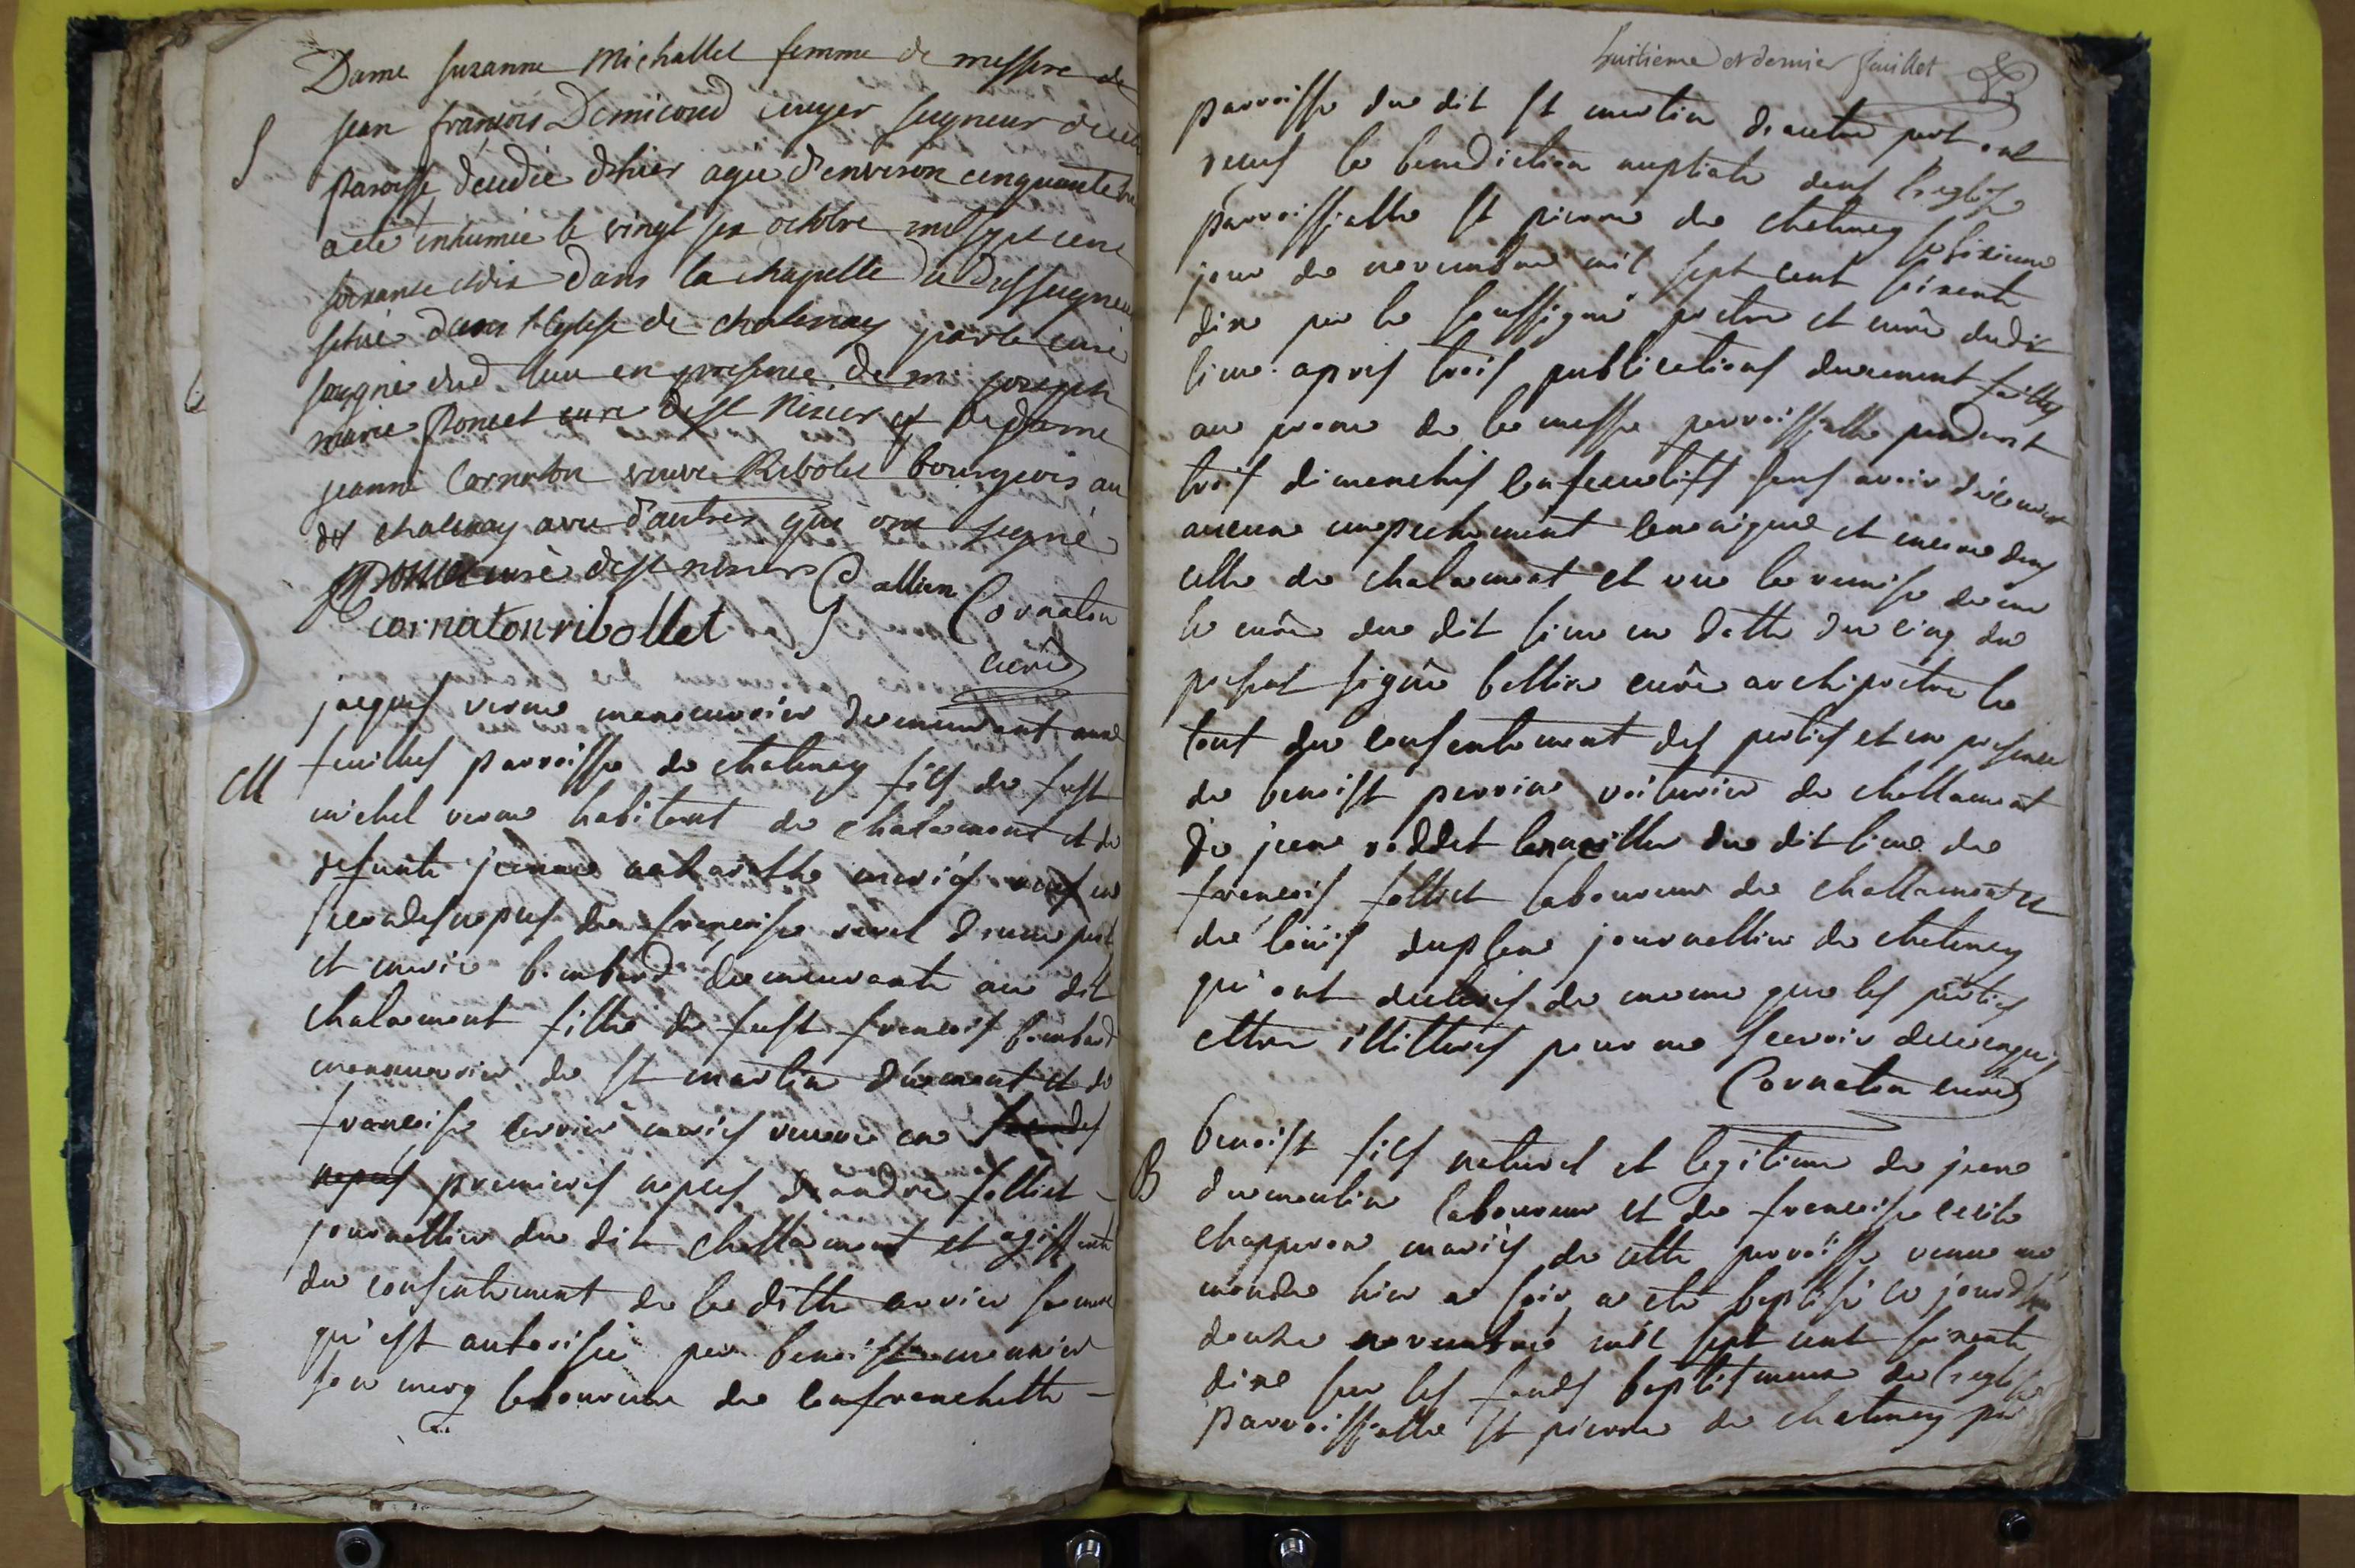 Dame suzanne Michallet femme de messire de
S
jean françois Demicoud ecuyer seigneur de cette
paroisse, decedée d'hier agée d'environ cinquante
a été inhumée le vingt six octobre mil sept cent
soixante et dix dans la chapelle dud seigneur
située dans l'eglise de chatenay par le curé
soussigné dud. lieu en presence de mr joseph
marie Poncet curé de st Nizier et de dame
jeanne Cornaton veuve Ribolet bourgeois au
dt chatenay avec d'autres qui ont signé
Poncet curé de st nizier Gallien Cornaton
cornaton ribollet
curé
jaques verne manouvrier demeurant aux
M
feuilles parroisse de chatenay fils de fust
michel verne habitant de chalamont et de
defunte jeanne mariés veuf en
secondes nopces de françoise revel d'une part
et marie bombard demeurante au dit
chalamont fille de fust francois bombard
manouvrier de st martin du mont et de
francoise mariés veuve en secondes
nopces premieres nopces d'andré folliet
journallier du dit challamont et agissante
du consentement de la ditte sa mere
qu'est autorisée par benoist monnier
son mary laboureur de la franchette
huitieme et dernier feuillet
parroisse du dit st martin d'autre part ont
receus la benediction nuptiale dans l'eglise
parroissialle st pierre de chatenay le sixieme
jour de novembre mil sept cent soixente
dixe par le soussigné pretre et curé dudit
lieu. apres trois publications duement faittes
au prone de la messe parroissialle pendant
trois dimenches consecutifs sans avoir découvert
aucune empechement canonique et mesme dans
celle de chalamont et vue la remise de mr
le curé du dit lieu en datte du cinq du
present signé bellin curé archipretre le
tout du consentement des parties et en presence
de benoist perrin voiturier de challamont
de jean du dit lieu de
francois folliet laboureur de challamont et
de loüis duplan journallier de chatenay
qu'ont declarés de meme que les parties
ettre illitterés pour ne scavoir de ce enquis
Cornaton curé
B
benoist fils naturel et legitime de jean
dumoulin laboureur et de francoise
chapperon mariés de cette parroisse venue au
monde hier a soir a eté baptisé ce jourd'huy
douze novembre mil sept cent soixente
dixe sur les fonds baptismeaux de l'eglise
parroissialle st pierre de chatenay par